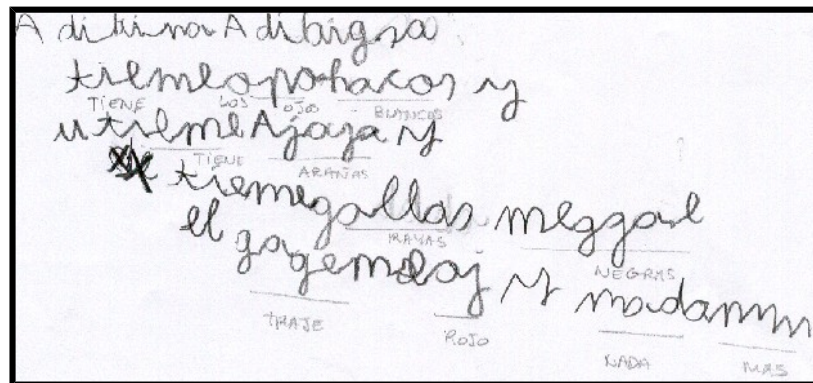 A ditrina A dibigsa
tiemeopohacos y
TIENE LOS OJOS BLANCOS
u tiemeAjaja y
TIENE ARAÑAS
tiemegallas meggal
RAYAS NEGRAS
el gagemeloj y madammm
TRAJE ROJO NADA MAS